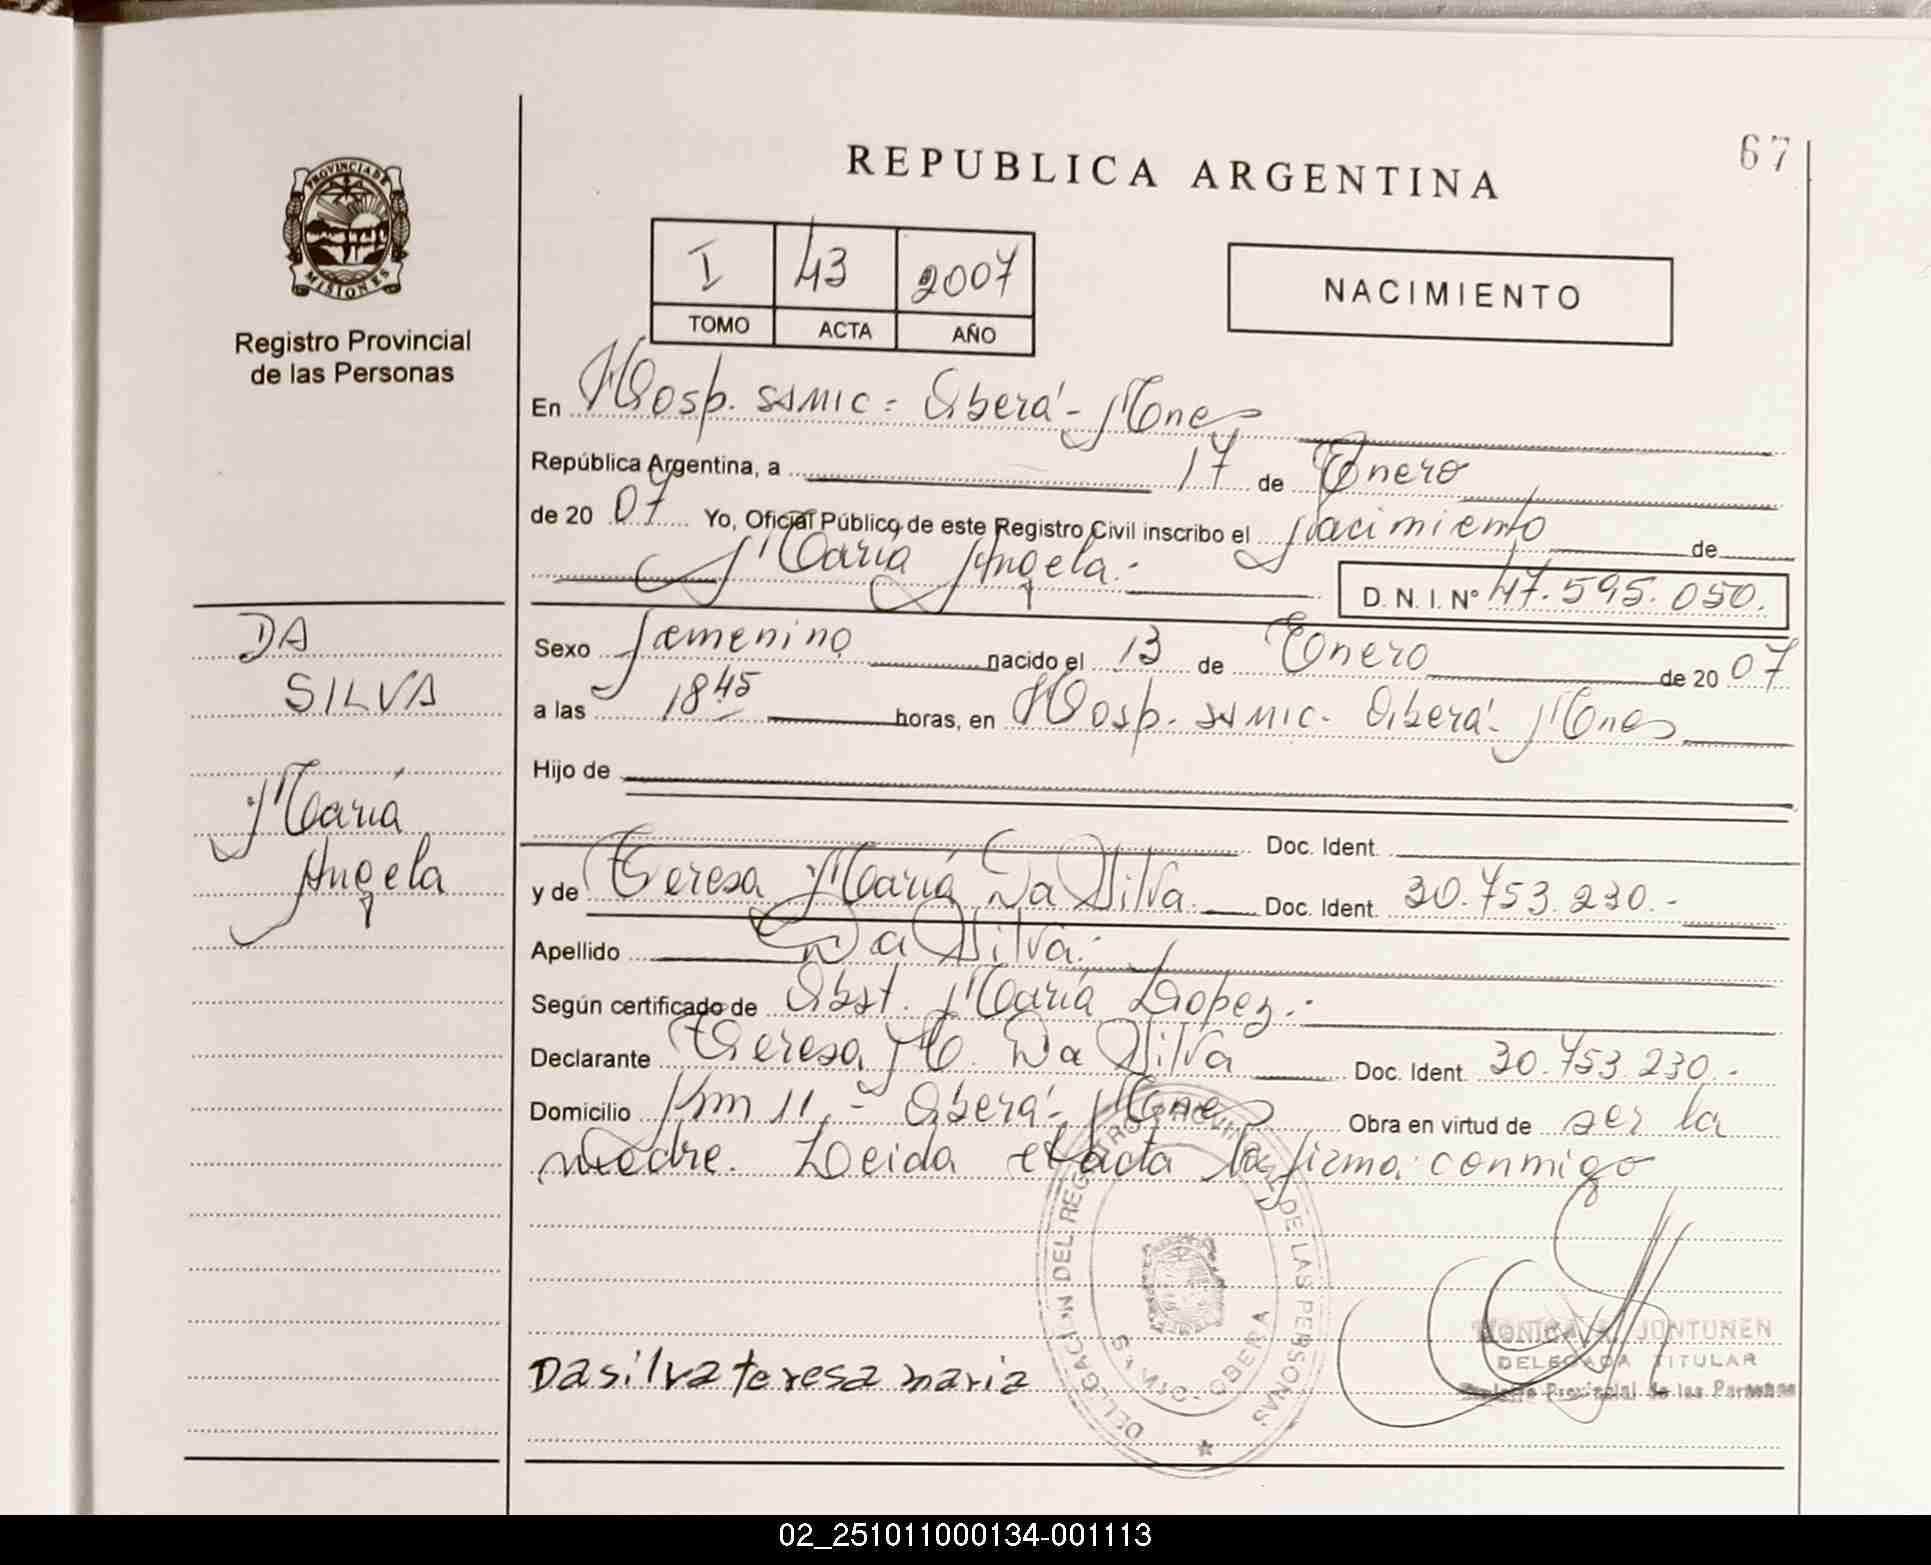 67
REPUBLICA ARGENTINA
PROVINCIA DE
MISIONES
Registro Provincial
de las Personas
I 43 2007
TOMO ACTA AÑO
NACIMIENTO
En Hosp. SAMIC - Oberá - Mnes
República Argentina, a 17 de Enero
de 20 07 Yo, Oficial Público de este Registro Civil inscribo el Nacimiento de
María Angela.- D.N.I. Nº 47.595.050.
DA
SILVA
María
Angela
Sexo Femenino nacido el 13 de Enero de 20 07
a las 18 45 horas, en Hosp. SAMIC - Oberá - Mnes
Hijo de
Doc. Ident.
y de Teresa María Da Silva. Doc. Ident. 30.753.230.-
Apellido Da Silva.
Según certificado de Obst. María Lopez.-
Declarante Teresa M. Da Silva Doc. Ident. 30.753.230.-
Domicilio Km 11.- Oberá - Mnes Obra en virtud de ser la
madre. Leida el acta la firma conmigo
DELEGACION DEL REGISTRO PROVINCIAL DE LAS PERSONAS
OBERA
Da silva teresa maria
MONICA JONTUNEN
DELEGADA TITULAR
Registro Provincial de las Personas
02_251011000134-001113